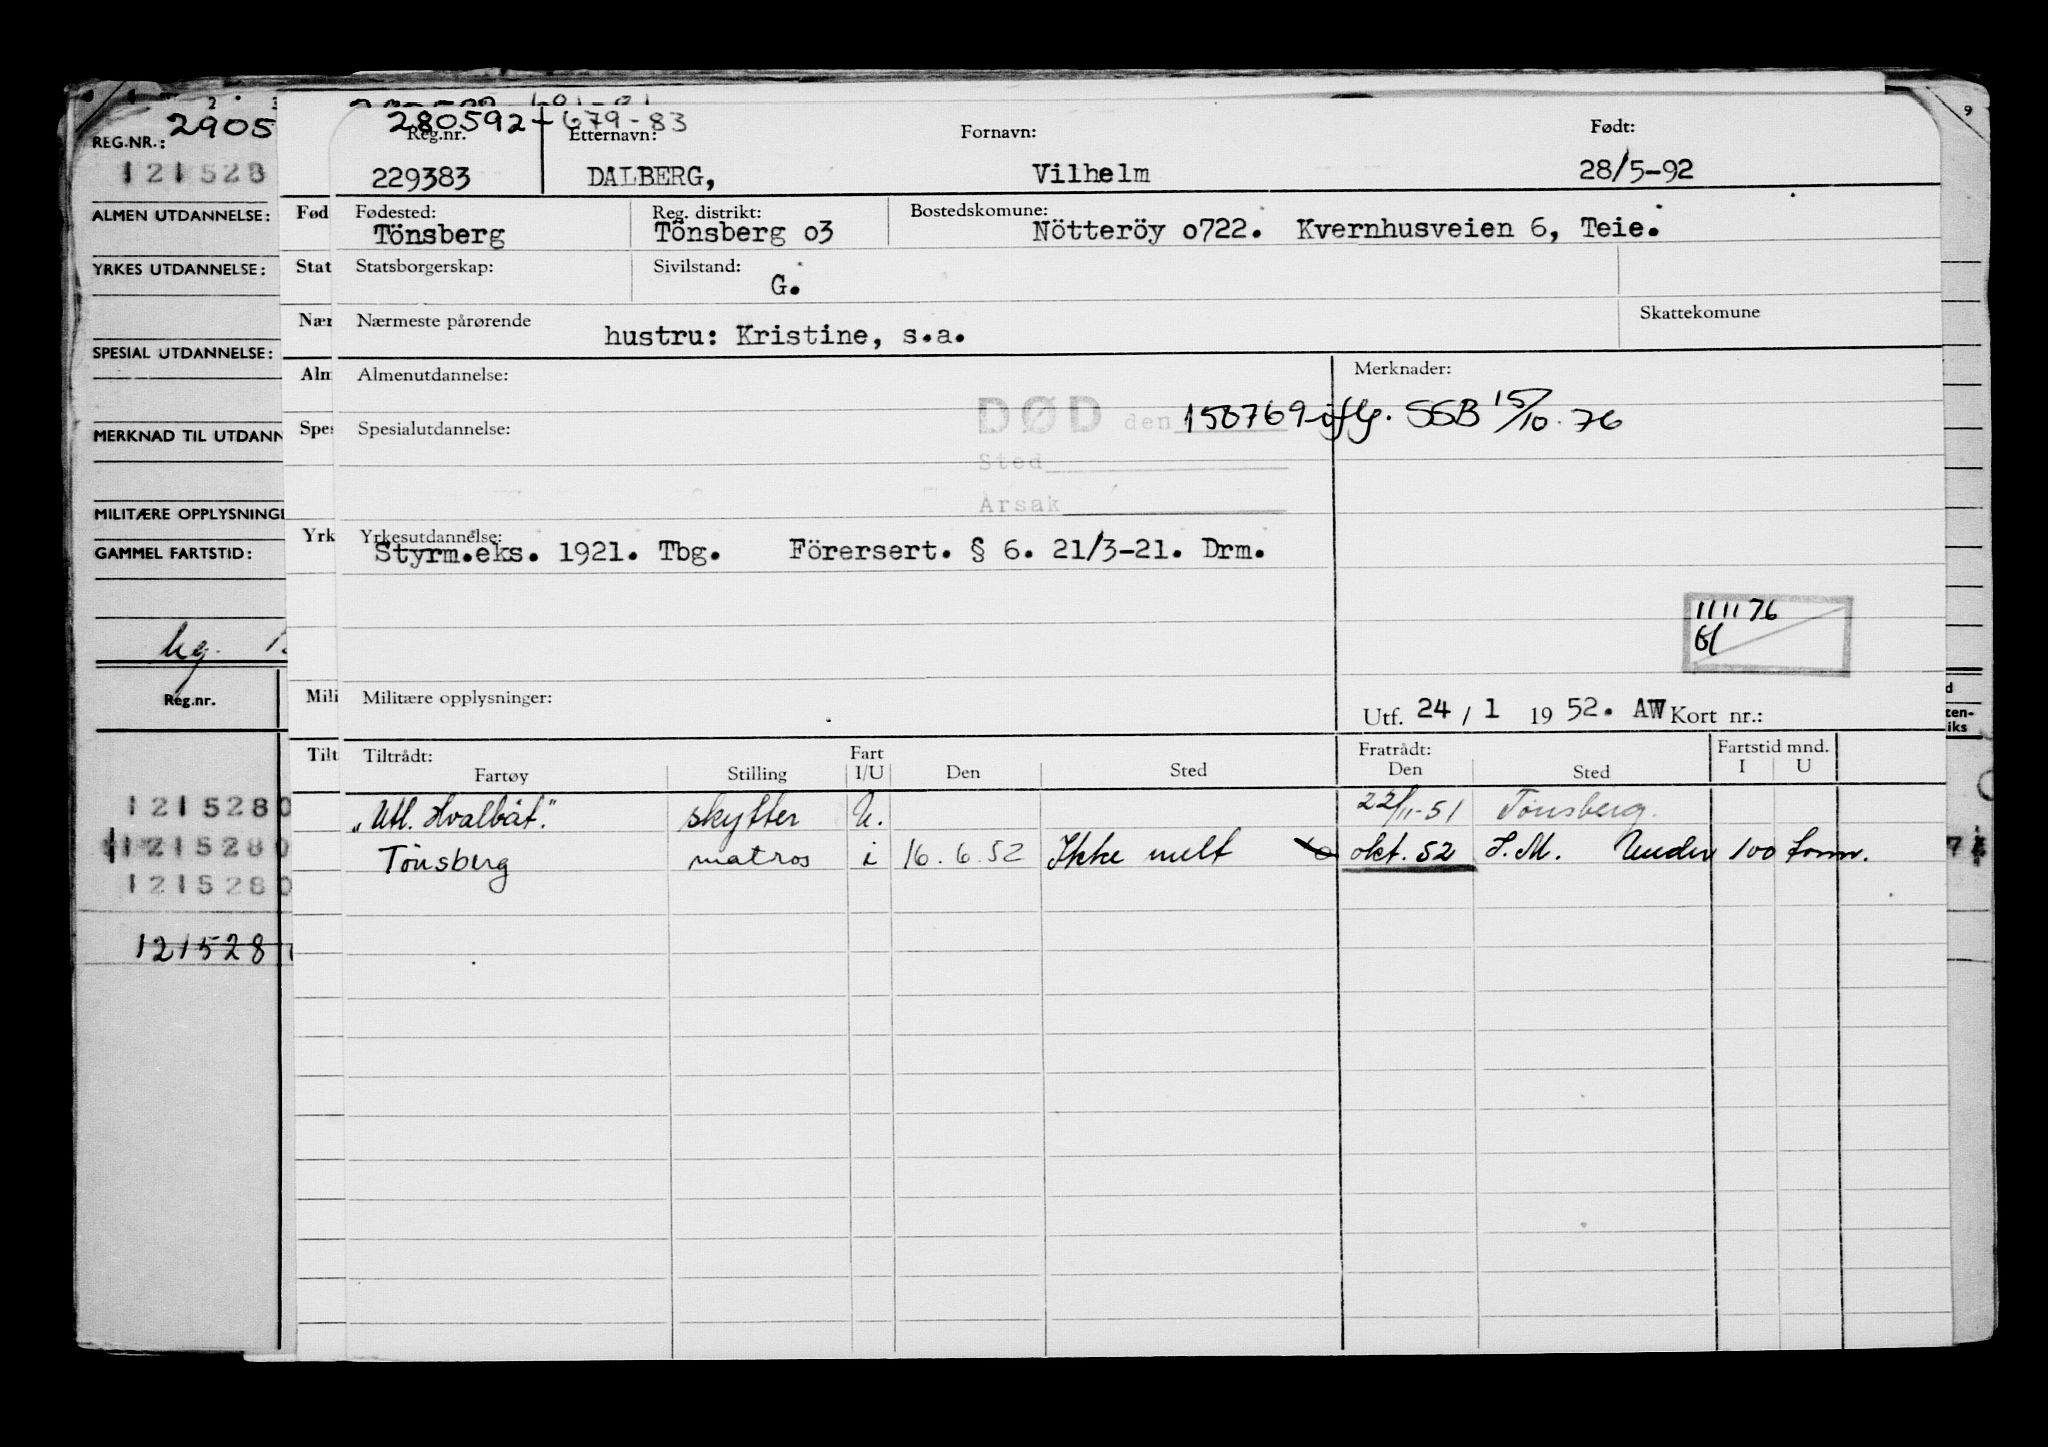 REG.NR.: 2905
121528
ALMEN UTDANNELSE:
YRKES UTDANNELSE:
SPESIAL UTDANNELSE:
MERKNAD TIL UTDANN
MILITÆRE OPPLYSNINGE
GAMMEL FARTSTID:
Reg.nr.
1215280
1215280
1215280
121528
Fød
Stat
Nær
Alm
Spes
Yrk
Mili
Tilt
280592 + 679-83
Reg.nr. Etternavn: Fornavn: Født:
229383 DALBERG, Vilhelm 28/5-92
Fødested: Reg. distrikt: Bostedskomune:
Tönsberg Tönsberg o3 Nötteröy o722. Kvernhusveien 6, Teie.
Statsborgerskap: Sivilstand:
G.
Nærmeste pårørende Skattekomune
hustru: Kristine, s.a.
Almenutdannelse: Merknader:
DØD den 150769 iflg. SSB 15/10.76
Spesialutdannelse:
Sted
Årsak
Yrkesutdannelse:
Styrm.eks. 1921. Tbg. Förersert. § 6. 21/3-21. Drm.
111176
Militære opplysninger:
Utf. 24 / 1 19 52. AW Kort nr.:
Tiltrådt: Fart Fratrådt: Fartstid mnd.
Fartøy Stilling I/U Den Sted Den Sted I U
"Utl. Hvalbåt." skytter U. 22/11-51 Tønsberg.
Tönsberg matros i 16.6.52 Ikke melt okt. 52 S.M. Under 100 tonn.